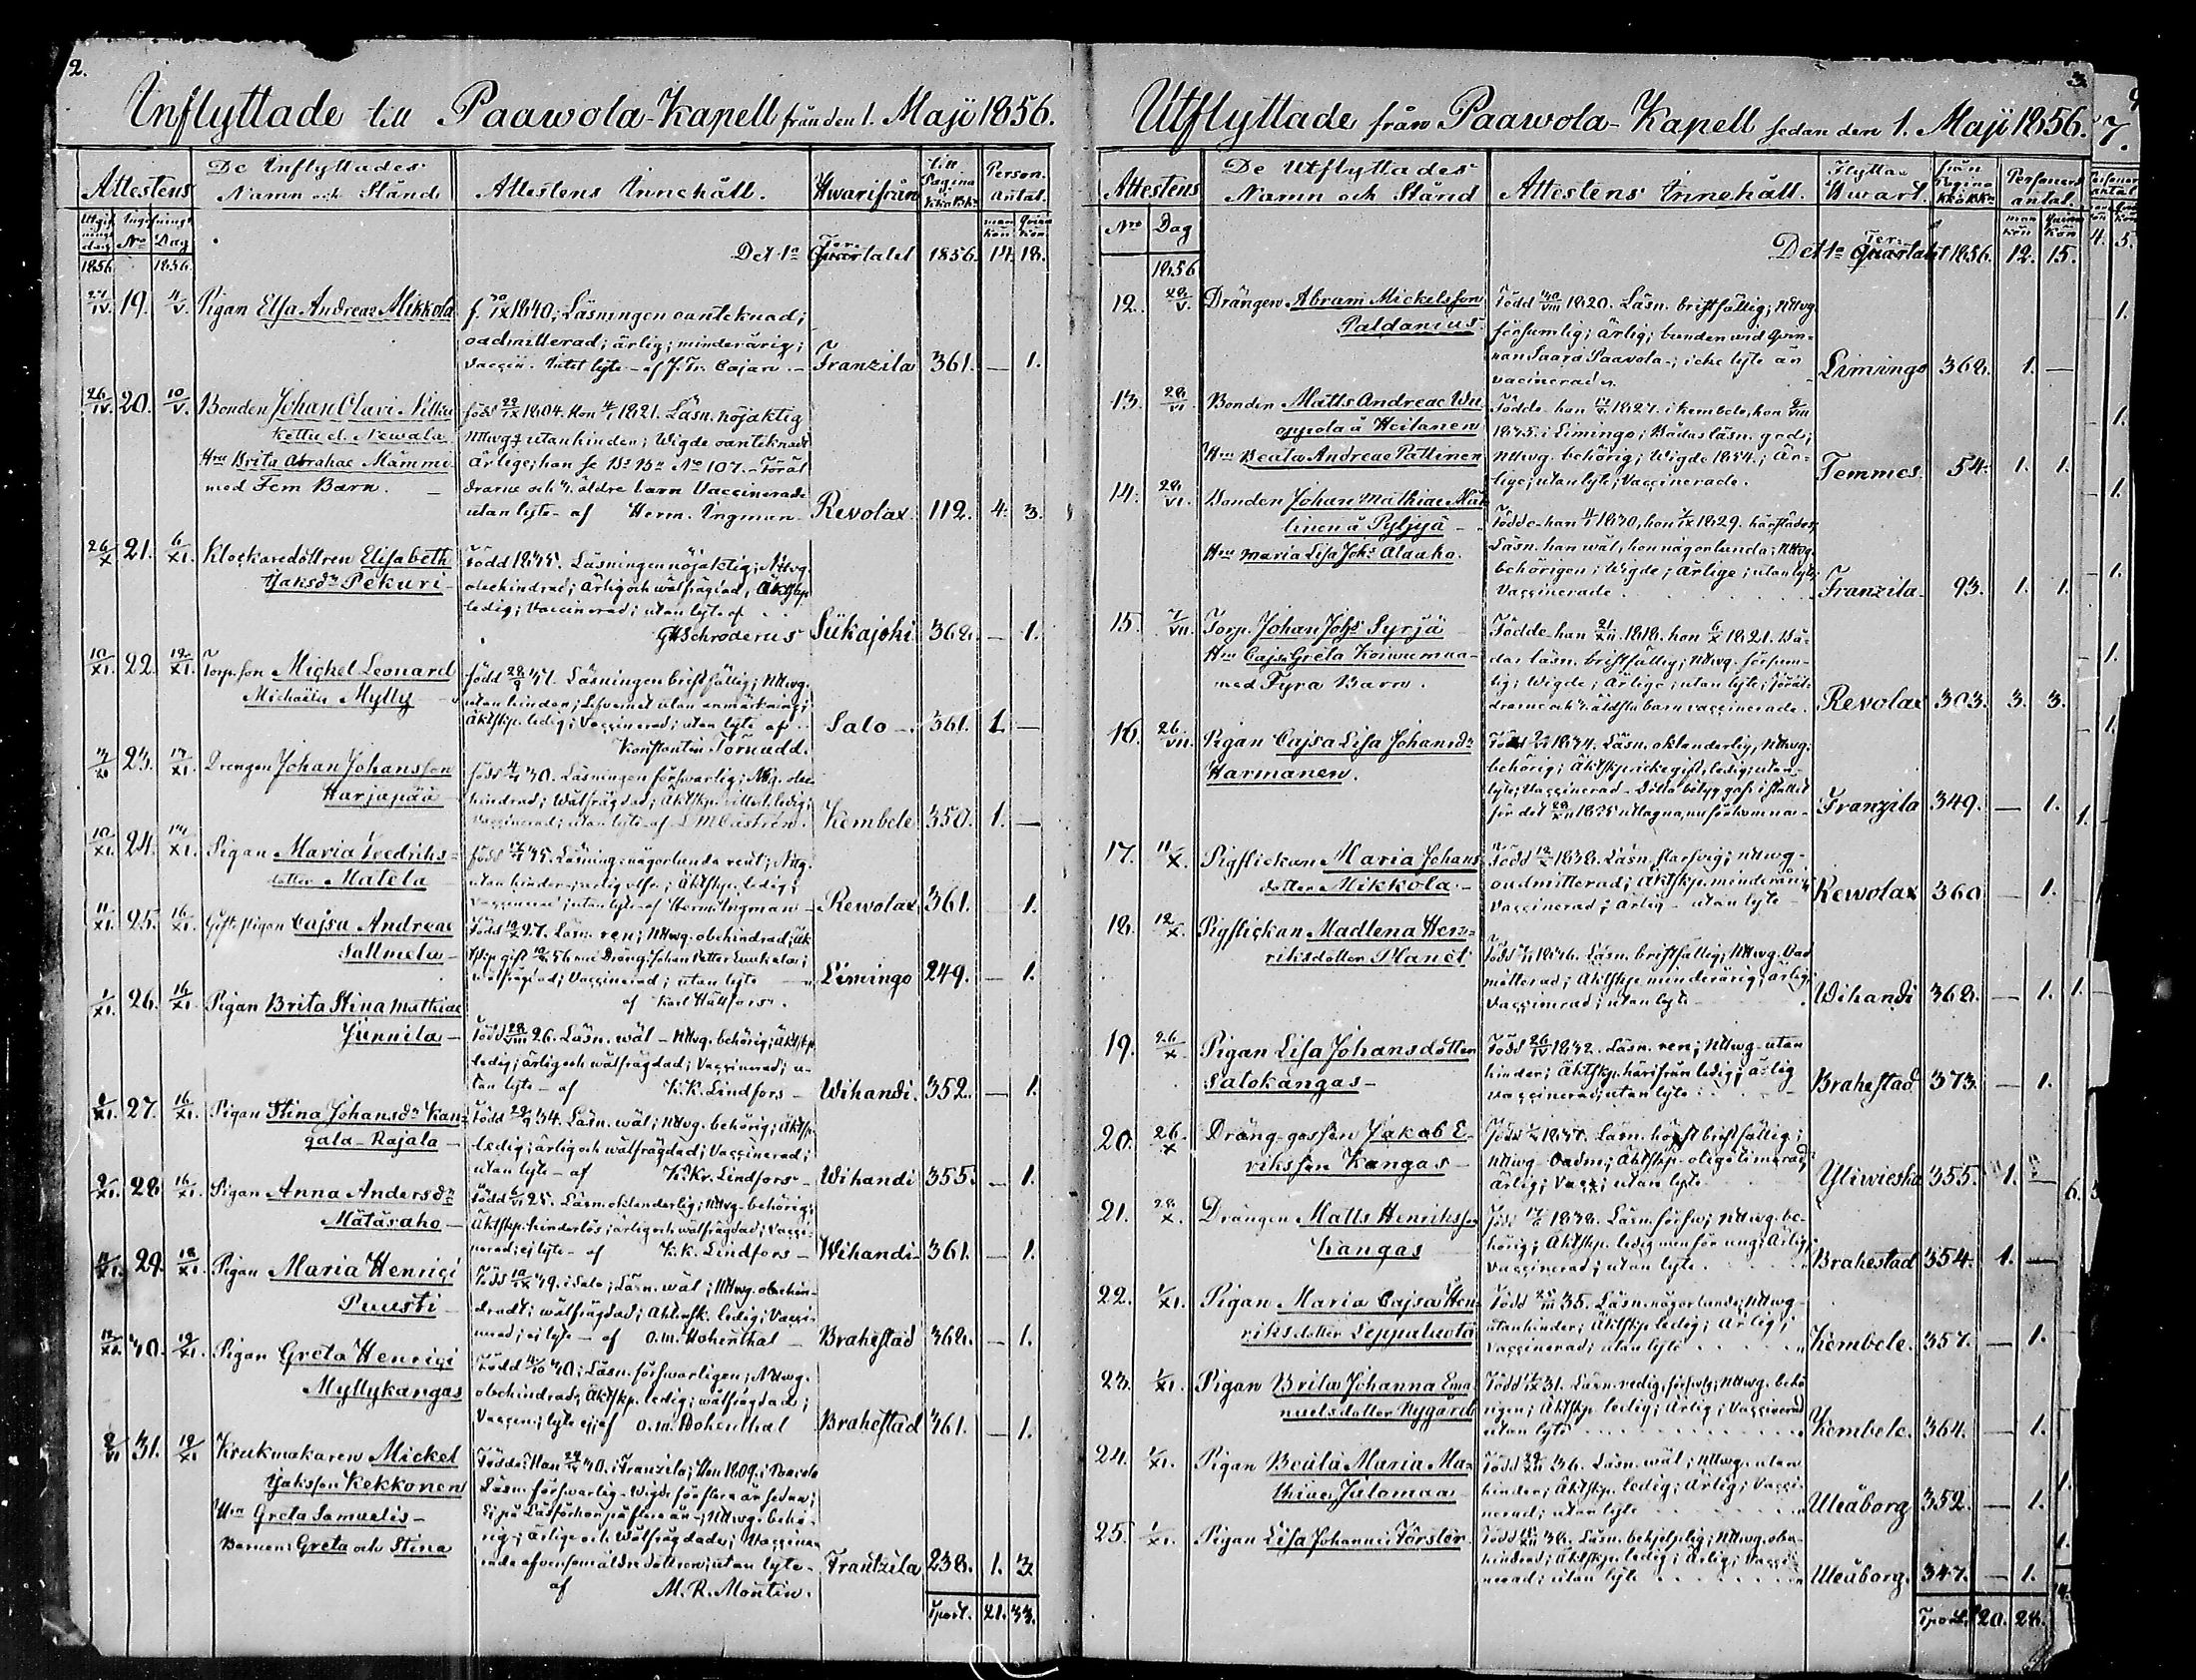 2.
Inflyttade till Paawola-Kapell från den 1. Maji 1856.
Attestens
De Inflyttades
Namn och Stånd
Attestens Innehåll.
Hwarifrån
till Pagina
Person. antal.
No Dag
man kön
Det 1a Ter Quartalet 1856. 14. 18.
1856 1856
19. 4/V. Pigan Elsa Andreae Mikkola
f. 1840; Läsningen oantecknad;
oadmitterad; ärlig; minderårig;
Vaccin. Intet lyte - af J. Fr. Cajan. Franzila 361. — 1.
26/IV. 20. 10/V. Bonden Johan Olavi
Kettu el. Newala
Hru Brita Abrahae Mämmi
med Fem Barn.
född 1804. Hon 1821. Läsn. nöjaktig
Nttwg utan hinder; Wigde oantecknadt
Ärlige; han se No 107. Föräl
drarne och äldre barn Vaccinerade
utan lyte - af Herm. Ingman Revolax. 112. 4. 3.
26/X 21. 6/XI. Klockaredottren Elisabeth
Jaksdr Pekuri
Född 1835. Läsningen nöjaktig; Nttwg.
obehindrad; Ärlig och wälfrägdad, Äktskp
ledig; Vaccinerad; utan lyte af
Schroderus Siikajoki 362. — 1.
10/XI. 22. 12/XI. Torp. son Michel Leonard
Michaelis Mylly
född 37. Läsningen bristfällig; Nttwg.
utan hinder; Lefvernet utan anmärkning;
Äktskp. ledig; Vaccinerad; utan lyte af
Konstantin Törnudd. Salo 361. 1. —
23. Drengen Johan Johansson
Harjapää
född 30. Läsningen förswarlig; Ntwg. obe
hindrad; Wälfrägdad; Äktskp. ledig;
Vaccinerad; utan lyte af Kembele 350. 1. —
24. Pigan Maria Fredriks-
dotter Matela
född 35. Läsning någorlunda rent; Ntwg.
utan hinder; Äktskp. ledig;
Vaccinerad; utan lyte af Herm. Ingman Rewolax 361. — 1.
11/XI. 25. 16/XI. Cajsa Andreae
Sallmela
Född 27. Läsn. ren; Nttwg. obehindrad; Äk
tskp. gift 56 med Dräng. Johan Petter
wälfrägdad; Vaccinerad; utan lyte
af Karl Hällfors. Limingo 249. — 1.
26. 16/XI. Pigan Brita Stina Mathiae
Junnila
Född 26. Läsn. wäl - Nttwg. behörig; Äktskp
ledig; ärlig och wälfrägdad; Vaccinerad; u-
tan lyte - af K. K. Lindfors Wihandi. 352. — 1.
27. 16/XI. Pigan Stina Johansdr Kan-
gala-Rajala
Född 34. Läsn. wäl; Nttwg. behörig; Äktskp.
ledig; ärlig och wälfrägdad; Vaccinerad;
utan lyte - af K. Kr. Lindfors Wihandi 355. — 1.
28 16/XI. Pigan Anna Andersdr
Mätäsaho
Född 25. Läsn. oklanderlig; Nttwg. behörig;
Äktskp. hinderlös; ärlig och wälfrägdad; Vacci-
nerad; ej lyte - af K. K. Lindfors Wihandi 361. — 1.
29. 18/XI. Pigan Maria Henrici
Puusti
Född 39. i Salo; Läsn. wäl; Nttwg. obehin-
dradt; wälfrägdad; Äktensk. ledig; Vacci-
nerad; ej lyte - af O. M. Hohenthal Brahestad 362. — 1.
30. 19/XI. Pigan Greta Henrici
Myllykangas
Född 30; Läsn. förswarligen; Nttwg.
obehindrad; Äktskp. ledig; wälfrägdad;
Vaccin; lyte ej; af O. M. Hohenthal Brahestad 361. — 1.
31. 19/XI. Krukmakaren Mickel
Jaksson Kekkonen
Hru Greta Samuelis
Barnen: Greta och Stina
Födde: Han i Franzila; Hon 1809. i Paavola
Läsn. förswarlig - Wigde för flera år sedan;
Ej på Läsförhör på flera år; Nttwg. behö-
rig; ärlige och wälfrägdade; Vaccine-
rade äfvensom äldre dottren; utan lyte
af M. R. Montin. Frantzila 238. 1. 3.
Tport. 21. 33.
3.
Utflyttade från Paawola-Kapell sedan den 1. Maji 1856.
Attestens
De Utflyttades
Namn och Stånd
Attestens Innehåll.
Flyttar Hwart.
från Pagina
Personers antal.
Nro Dag
Det 1a Ter Quartalet 1856. 12. 15.
1856
12. 28/V. Drängen Abram Mickelsson
Paldanius
Född 1820. Läsn. bristfällig; Nttwg.
försumlig; Ärlig; bunden wid Qwin-
nan Saara Paavola; icke lyte än
vaccinerad Limingo 362. 1. —
13. 28/VI. Bonden Matts Andreae Wu
oppola å Heitanen
Hru Beata Andreae Pottinen
Födde han 1827. i Kembele, hon
1835. i Limingo; Bådas läsn. god;
Nttwg. behörig; Wigde 1854.; Är-
lige; utan lyte; Vaccinerade. Temmes. 54. 1. 1.
14. 28/VI. Bonden Johan Mathiae
linen å Pyljyä
Hru Maria Lisa Johs Alaaho.
Födde han 1830, hon 1829. härstädes
Läsn. han wäl, hon någorlunda; Nttwg.
behörigen; Wigde; Ärlige; utan lyte;
Vaccinerade Franzila 93. 1. 1.
15. 7/VII. Torp. Johan Johs Syrjä
Hru Cajsa Greta Koiwumaa
med Fyra Barn.
Födde han 1818. hon 1821. Bå-
das läsn. bristfällig; Nttwg. försum-
lig; Wigde; Ärlige; utan lyte; föräl-
drarne och äldsta barn vaccinerade. Revolax 303. 3. 3.
16. 26/VII. Pigan Cajsa Lisa Johansdr
Harmanen.
Född 1834. Läsn. oklanderlig, Nttwg.
behörig; Äktskp. icke gift, ledig; utan
lyte; Vaccinerad - Detta betyg gafs i stället
för det 1855 uttagna, nu förkomna Franzila 349. — 1.
17. 11/X. Pigflickan Maria Johans
dotter Mikkola
Född 1838. Läsn. slarfvig; Nttwg-
oadmitterad; Äktskp. minderårig
Vaccinerad; Ärlig - utan lyte Rewolax 360 — 1.
18. 12/X. Pigflickan Madlena Hen-
riksdotter Planet
Född 1836. Läsn. bristfällig; Nttwg. Oad
mitterad; Äktskp. minderårig; ärlig;
Vaccinerad; utan lyte Wihandi 362. — 1.
19. 26/X Pigan Lisa Johansdotter
Salokangas
Född 1832. Läsn. ren; Nttwg. utan
hinder; Äktskp. härifrån ledig; ärlig
vaccinerad; utan lyte Brahestad 373. — 1.
20. 26/X Dräng-gossen Jakob E-
riksson Kangas
Född 1837. Läsn. högst bristfällig;
Nttwg - Oadm; Äktskp.
ärlig; Vacc; utan lyte Yliwieska 355. 1. —
21. 28/X. Drängen Matts Henriksson
Kangas
Född 1838. Läsn. förswl; Nttwg. be-
hörig; Äktskp. ledig men för ung; Ärlig;
Vaccinerad; utan lyte Brahestad 354. 1. —
22. 1/XI. Pigan Maria Cajsa Hen-
riksdotter Leppaluoto
Född 35. Läsn. någorlunda; Nttwg-
utan hinder; Äktskp. ledig; Ärlig;
Vaccinerad; utan lyte Kembele. 357. — 1.
23. Pigan Brita Johanna Ema-
nuelsdotter Nygård
Född 31. Läsn. redig, förswlg; Nttwg. behö
rigen; Äktskp. ledig; Ärlig; Vaccinerad
utan lyte Kembele. 364. — 1.
24. 1/XI. Pigan Beata Maria Ma-
thiae Jutomaa
Född 36. Läsn. wäl; Nttwg. utan
hinder; Äktskp. ledig; Ärlig; Vacci-
nerad; utan lyte Uleåborg 352. — 1.
25. 1/XI. Pigan Lisa Johannis Förster
Född 36. Läsn. behjelplig; Nttwg. obe-
hindrad; Äktskp. ledig; Ärlig; Vacci-
nerad; utan lyte Uleåborg. 347. — 1.
Tport. 20. 28.